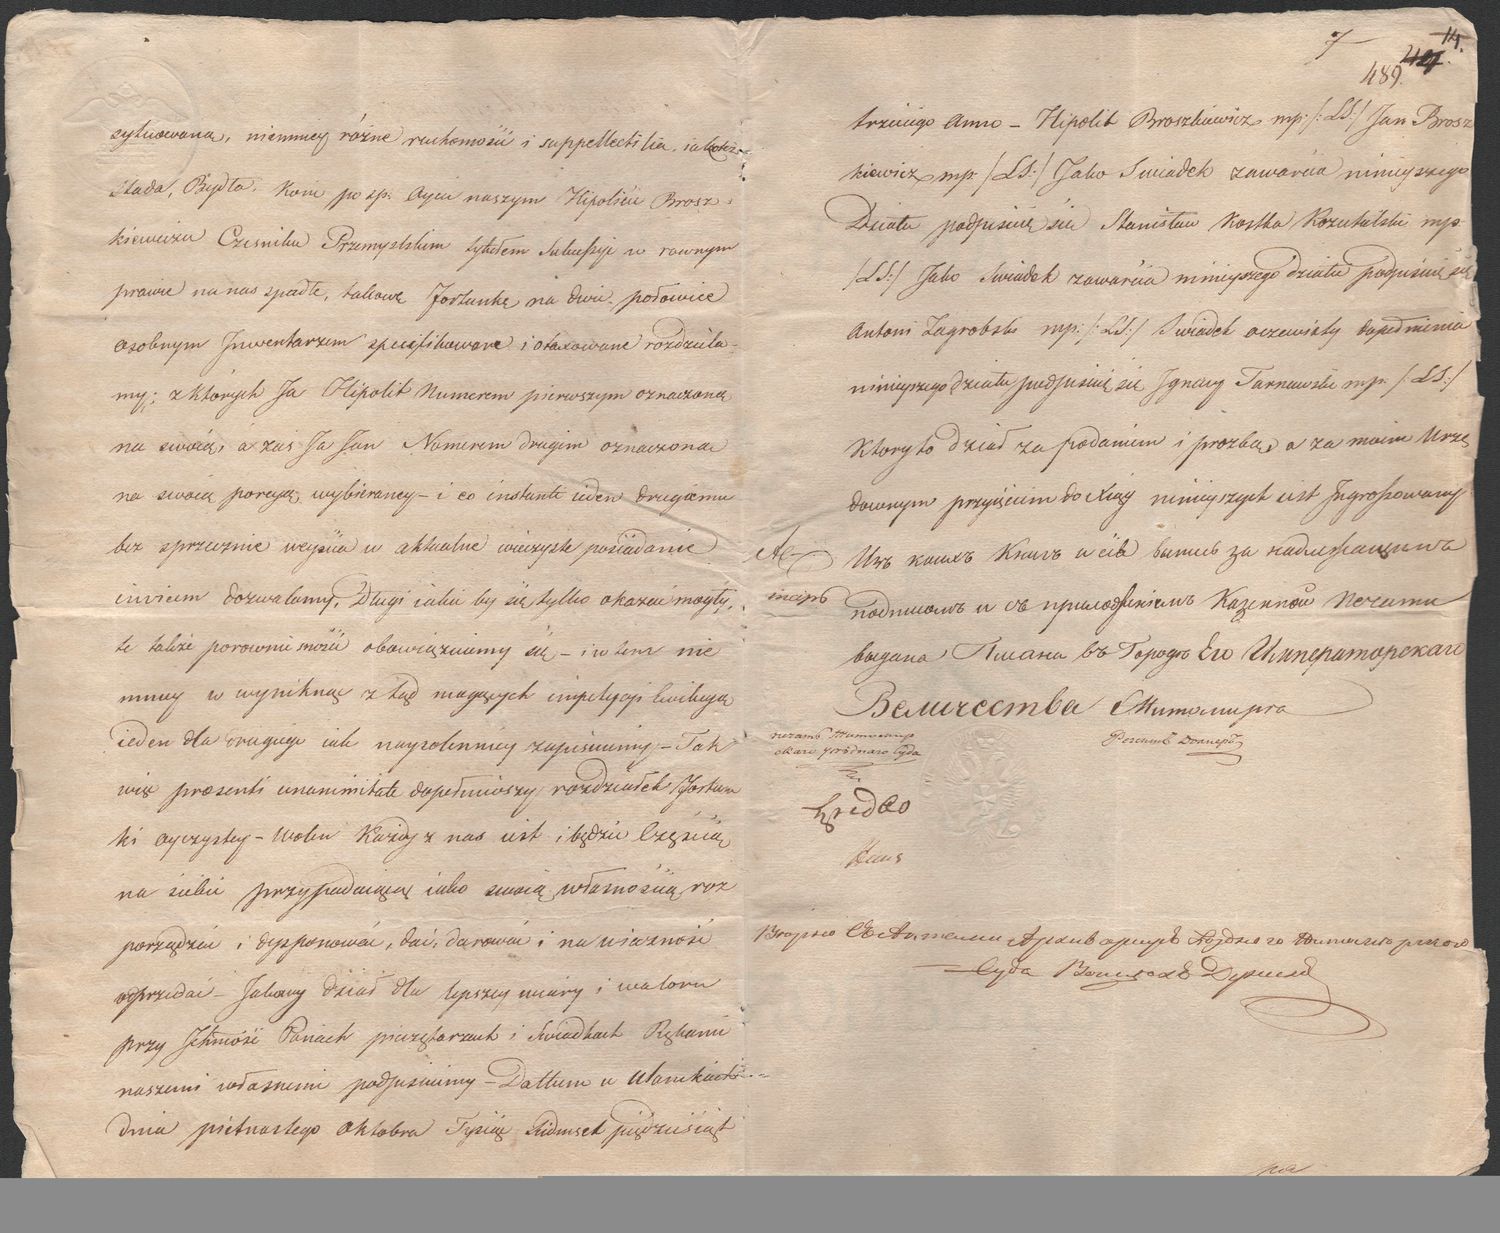 sytuowaną, niemniey różne ruchomośći i suppellectilia, iakoteż
stada, Bydła, Konie po sp. Oycu naszym Hipolićie Brosz-
kiewiczu Cześniku Przemyslskim tytułem Sukcessyi w rownym
prawie na nas spadłe, takową fortunkę na dwie połowice
osobnym Jnwentarzem specifikowane i otaxowane rozdziela-
my; z których Ja Hipolit Numerem pierwszym oznaczoną
na swoią, a zaś Ja Jan Numerem drugim oznaczoną
na swoią porcyą wybieramy – i eo instanti ieden drugiemu
bez sprzecznie weyśćia w aktualne wieczyste posiadanie
invicem dozwalamy, Długi iakie by się tylko okazać mogły,
te także porowni znośić obowiązuiemy się – i w tem nie
mniey w wyniknąć z tąd mogących impetycyi Ewikcyą
ieden dla drugiego iak naysolenniey zapisuiemy – Tak
więc præsenti unanimitate dopełniwszy rozdziałek fortun
ki oyczystey – wolen Każdy z nas iest i będzie Częśćią
na siebie przypadaiącą iako swoią własnośćią roz
porządzać i dysponować, dać, darować i na wieczność
odprzedać – Jakowy dział dla lepszey wiary i waloru
przy Jchmość Panach pieczętarzach i Swiadkach Rękami
naszemi własnemi podpisuiemy – Dattum w
dnia pietnastego Oktobra Tysiąc Siedmset pięćdziesiąt
7
14.
489.
trzeciego Anno – Hipolit Broszkiewicz mp: /:LS:/ Jan Brosz
kiewicz mp. /LS:/ Jako Swiadek zawarcia ninieyszego
Działu podpisuię się Stanisław Kostka Kozubalski mp.
/LS:/ Jako Swiadek zawarćia ninieyszego działu podpisuię się
Antoni Zagrobski mp: /:LS:/ Swiadek oczewisty dopełnienia
ninieyszego działu podpisuię się Jgnacy Tarnawski mp. /LS:/
Ktory to dział za podaniem i prozbą, a za moim Urzę
downym przyięciem do Xiąg ninieyszych iest Jngrossowany
Изъ коихъ Книгъ и сія выпись за надлежащимъ
подписомъ и съ приложеніемъ Казенной печати
выдана Писана въ Городѣ Его Императорскаго
Величества Житомирѣ
печать Житомир
скаго уѣзднаго Суда
Суда